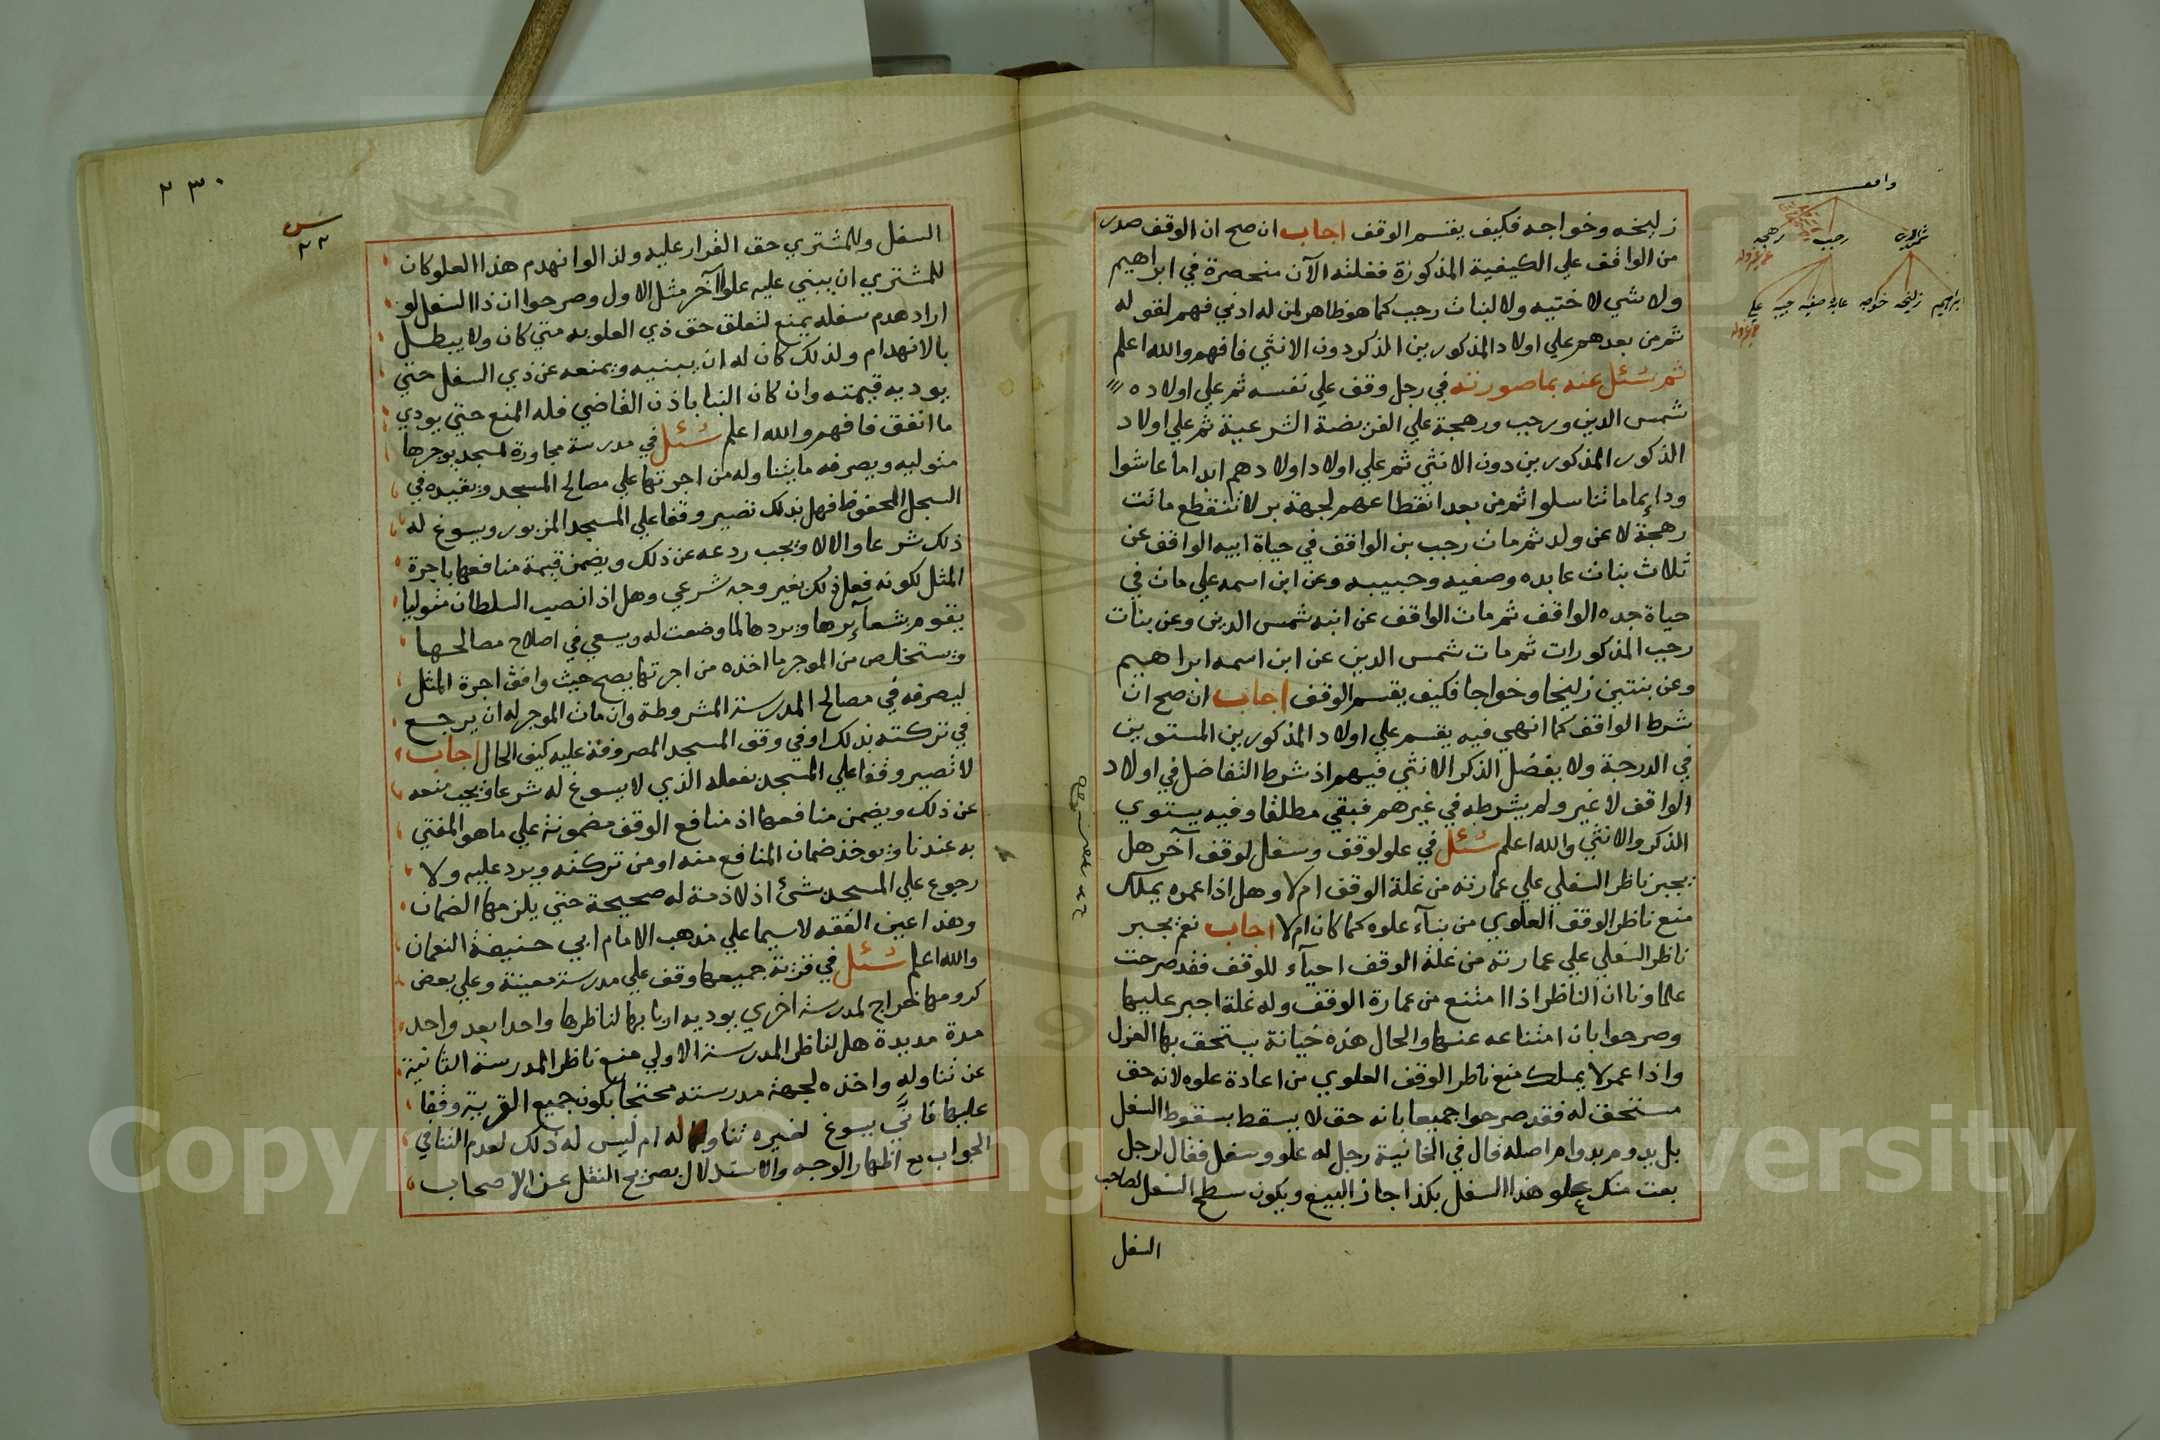 واقف
شمس الدين رجب رهجه
ابراهيم زليخه خواجه عابده صفيه حبيبه علي
زليخه وخواجه فكيف يقسم الوقف اجاب ان صح ان الوقف صدر
من الواقف علي الكيفية المذكورة فغلته الآن منحصرة في ابراهيم
ولا شي لاختيه ولا لبنات رجب كما هو ظاهر لمن له ادني فهم لقوله
ثم من بعدهم علي اولاد المذكورين الذكر دون الانثي فافهم والله اعلم
ثم سُئل عنه بما صورته في رجل وقف علي نفسه ثم علي اولاده
شمس الدين ورجب ورهجة علي الفريضة الشرعية ثم علي اولاد
الذكور المذكورين دون الانثي ثم علي اولاد اولادهم ابدا ما عاشوا
ودايما ما تناسلوا ثم من بعد انقطاعهم لجهة بر لا تنقطع ماتت
رهجة لا عن ولد ثم مات رجب بن الواقف في حياة ابيه الواقف عن
ثلاث بنات عابده وصفيه وحبيبه وعن ابن اسمه علي مات في
حياة جده الواقف ثم مات الواقف عن ابنه شمس الدين وعن بنات
رجب المذكورات ثم مات شمس الدين عن ابن اسمه ابراهيم
وعن بنتين زليخا وخواجا فكيف يقسم الوقف اجاب ان صح ان
شرط الواقف كما انهي فيه يقسم علي اولاد المذكورين المستوين
في الدرجة ولا يفضل الذكر الانثي فيهم اذ شرط التفاضل في اولاد
الواقف لا غير ولم يشرطه في غيرهم فبقي مطلقا وفيه يستوي
الذكر والانثي والله اعلم سُئل في علو لوقف وسفل لوقف آخر هل
يجبر ناظر السفلي علي عمارته من غلة الوقف ام لا وهل اذا عمره يملك
منع ناظر الوقف العلوي من بنآء علوه كما كان ام لا اجاب نعم يجبر
ناظر السفلي علي عمارته من غلة الوقف احيآء للوقف فقد صرحت
علماونا ان الناظر اذا امتنع من عمارة الوقف وله غلة اجبر عليها
وصرحوا بان امتناعه عنها والحال هذه خيانة يستحق بها العزل
واذا عمر لا يملك منع ناظر الوقف العلوي من اعادة علوه لانه حق
مستحق له فقد صرحوا جميعا بانه حق لا يسقط بسقوط السفل
بل يدوم بدوام اصله قال في الخانية رجل له علو وسفل فقال لرجل
بعت منك علو هذا السفل بكذا جاز البيع ويكون سطح السفل لصاحب
السفل
٢٣٠
٢٢
السفل وللمشتري حق القرار عليه ولذا لو انهدم هذا العلو كان
للمشتري ان يبني عليه علوا آخر مثل الاول وصرحوا ان ذا السفل لو
اراد هدم سفله يمنع لتعلق حق ذي العلو به متي كان ولا يبطل
بالانهدام ولذلك كان له ان يبنيه ويمنعه عن ذي السفل حتي
يوديه قيمته وان كان البنا باذن القاضي فله المنع حتي يودي
ما انفق فافهم والله اعلم سُئل في مدرسة مجاورة لمسجد يوجرها
متوليه ويصرفه ما يتناوله من اجرتها علي مصالح المسجد ويقيده في
السجل المحفوظ فهل بذلك تصير وقفا علي المسجد المزبور ويسوغ له
ذلك شرعا والا لا ويجب ردعه عن ذلك ويضمن قيمة منافعها باجرة
المثل لكونه فعل ذلك بغير وجه شرعي وهل اذا نصب السلطان متوليا
يقوم بشعآيرها ويردها لما وضعت له ويسعي في اصلاح مصالحها
ويستخلص من الموجر ما اخذه من اجرتها يصح حيث وافق اجرة المثل
ليصرفه في مصالح المدرسة المشروطة وان مات الموجر له ان يرجع
في تركته بذلك او في وقف المسجد المصروفة عليه كيف الحال اجاب
لا تصير وقفا علي المسجد بفعله الذي لا يسوغ له شرعا ويجب منعه
عن ذلك ويضمن منافعها اذ منافع الوقف مضمونة علي ما هو المفتي
به عندنا ويوخذ ضمان المنافع منه او من تركته ويرد عليه ولا
رجوع علي المسجد بشئ اذ لا ذمة له صحيحة حتي يلزمها الضمان
وهذا عين الفقه لا سيما علي مذهب الامام ابي حنيفة النعمان
والله اعلم سُئل في قرية جميعها وقف علي مدرسة معينة وعلي بعض
كرومها خراج لمدرسة اخري يوديه اربابها لناظرها واحدا بعد واحد
مدة مديدة هل لناظر المدرسة الاولي منع ناظر المدرسة الثانية
عن تناوله واخذه لجهة مدرسته محتجا بكون جميع القرية وقفا
عليها فاني يسوغ لغيره تناوله ام ليس له ذلك لعدم التنافي
الجواب مع اظهار الوجه والاستدلال بصريح النقل عن الاصحاب
Copyright © King Saud University